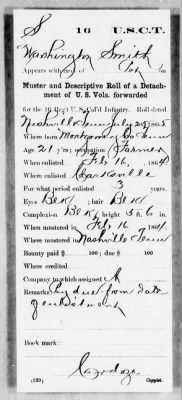 S 16 U.S.C.T.
Washington Smith
Appears with rank of Pvt on
Muster and Descriptive Roll of a Detach-
ment of U. S. Vols. forwarded
for the 16 Reg't U.S. Col'd Infantry. Roll dated
Nashville Tenn July 25, 1865.
Where born Montgomery Co Tenn
Age 21 y'rs; occupation Farmer
When enlisted Feb 16, 1864
Where enlisted Clarksville
For what period enlisted 3 years.
Eyes Blk; hair Blk
Complexion Blk; height 5 ft. 6 in.
When mustered in Feb 16, 1864.
Where mustered in Nashville Tenn
Bounty paid $ 100; due $ 100
Where credited
Company to which assigned A
Remarks: Pay due from date
of enlistment
Book mark:
Cardoza
(339) Copyist.